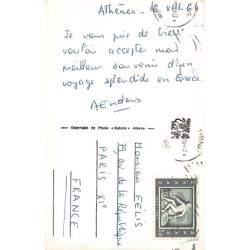 Athènes - 16 VIII. 64
Je vous prie de bien
vouloir accepter mon
meilleur souvenir d'un
voyage splendide en Grèce.
Copyright by Photo « Sphinx » Athens
Monsieur FELIS
79, av. de la République
PARIS XIe
FRANCE
ΕΛΛΑΣ